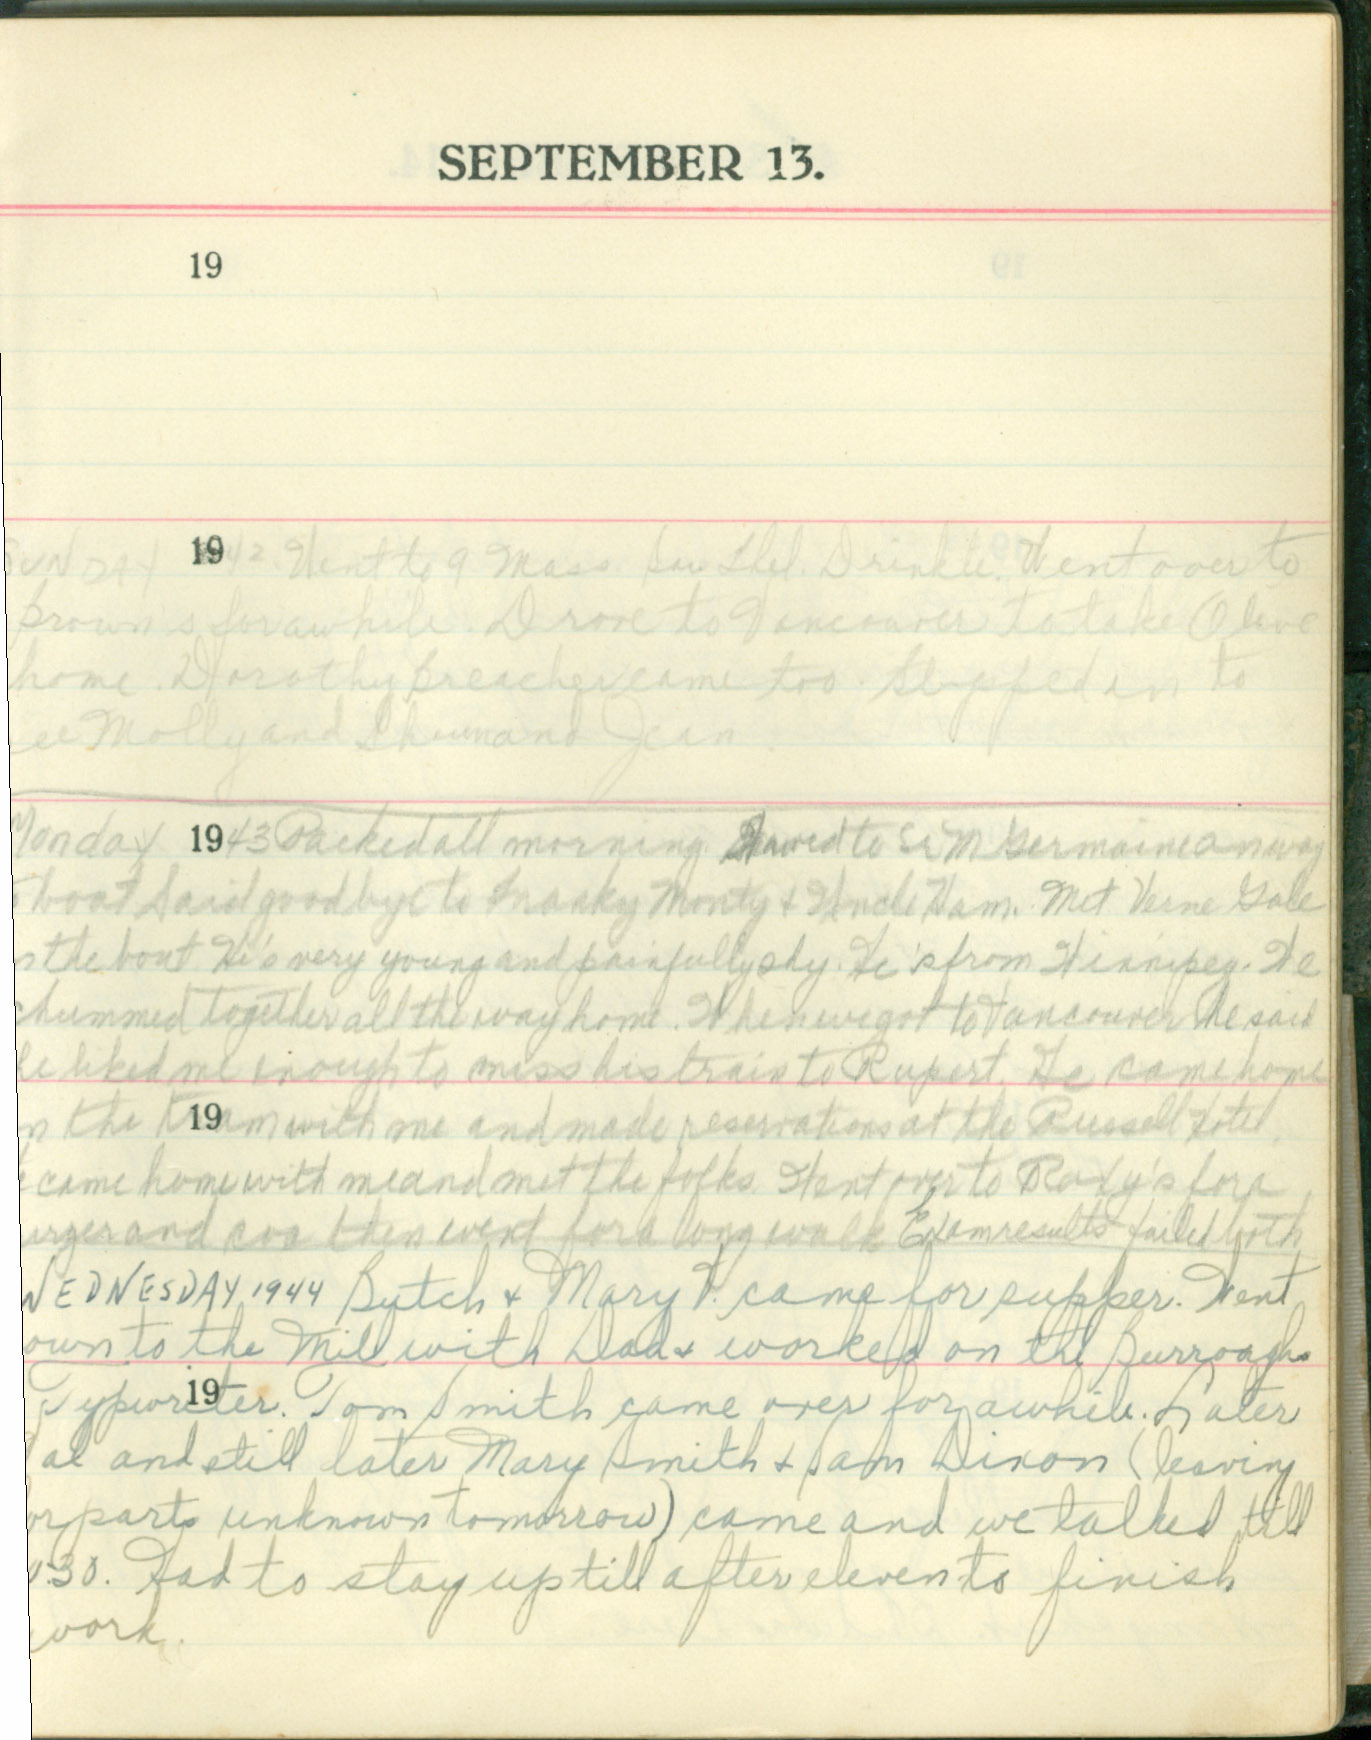 SEPTEMBER 13.
19
19
SUNDAY 42 Went to 9 Mass. Saw Drinkle. Went over to
Brown's for awhile. Drove to Vancouver to take Olive
home. Dorothy Preacher came too. Stopped in to
ee Molly and and Jean
Monday 1943 Packed all morning. to Germaine on way
boat Said goodbye to Monty & Uncle Ham. Met Verne Gale
n the boat. He's very young and painfully shy. He's from Winnipeg. We
chummed together all the way home. When we got to Vancouver he said
he liked me enough to miss his train to Rupert. He came home
19
n the tram with me and made reservations at the Russell Hotel.
came home with me and met the folks. Went over to for a
urger and then went for a long walk Exam results failed both
WEDNESDAY 1944 Butch & Mary F. came for supper. Went
own to the Mill with Dad & worked on the Burroughs
19
Typwriter. Tom Smith came over for awhile. Later
al and still later Mary Smith & Sam Dixon (leaving
or parts unknown tomorrow) came and we talked till
:30. Had to stay up till after eleven to finish
work.